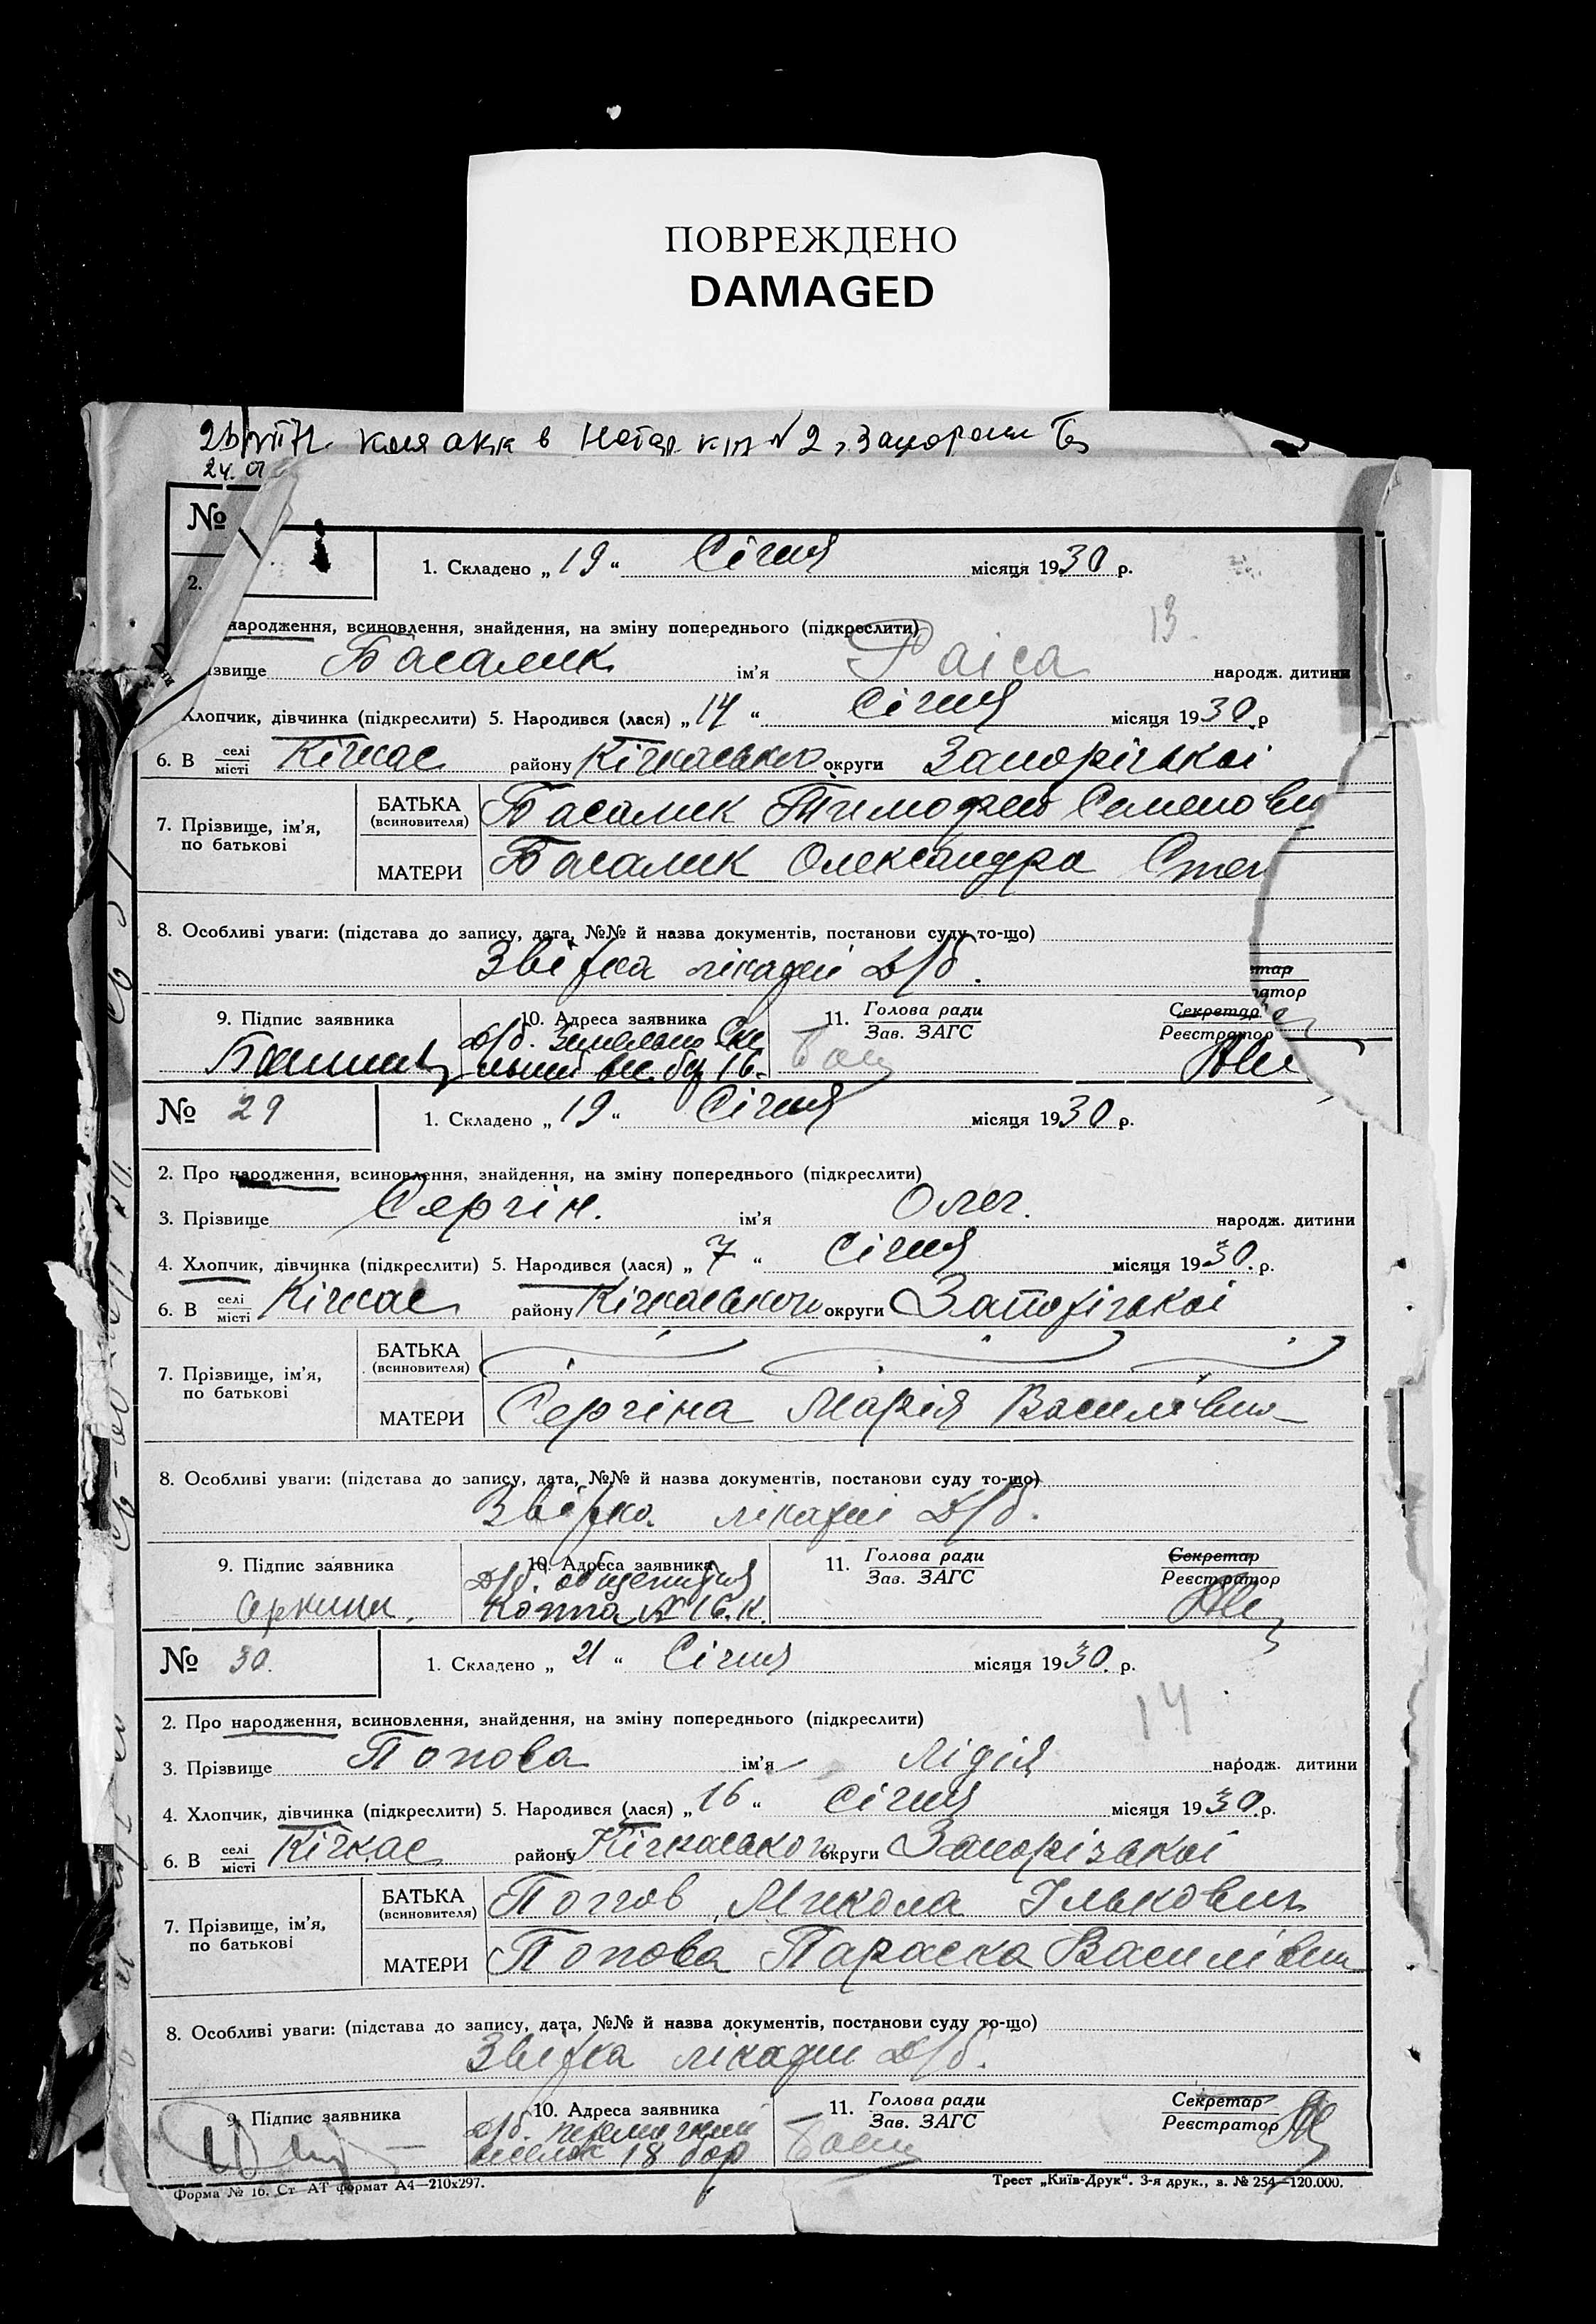 ПОВРЕЖДЕНО
DAMAGED
в Нотар. № 2
24.
№
2.
1. Складено „19“ Січня місяця 1930 р.
13.
народження, всиновлення, знайдення, на зміну попереднього (підкреслити)
ізвище Басалик ім'я Раіса народж. дитини
Хлопчик, дівчинка (підкреслити) 5. Народився (лася) „14“ Січня місяця 1930 р
6. В селі місті Кічкас району Кічкаського округи Запорізькоі
7. Прізвище, ім'я, по батькові
БАТЬКА (всиновителя) Басалик Тимофей Семенови
МАТЕРИ Басалик Олександра Степ
8. Особливі уваги: (підстава до запису, дата, №№ й назва документів, постанови суду то-що)
Звідка лікарні Д/б.
9. Підпис заявника 10. Адреса заявника 11. Голова ради Зав. ЗАГС Секретар Реєстратор
Д/б. 16
№ 29 1. Складено „19“ Січня місяця 1930 р.
2. Про народження, всиновлення, знайдення, на зміну попереднього (підкреслити)
3. Прізвище Сергін. ім'я Олег. народж. дитини
4. Хлопчик, дівчинка (підкреслити) 5. Народився (лася) „7“ Січня місяця 1930. р.
6. В селі місті Кічкас району Кічкаського округи Запорізькоі
7. Прізвище, ім'я, по батькові
БАТЬКА (всиновителя)
МАТЕРИ Сергіна Марія Василівна
8. Особливі уваги: (підстава до запису, дата, №№ й назва документів, постанови суду то-що)
Звідка лікарні Д/б.
9. Підпис заявника 10. Адреса заявника 11. Голова ради Зав. ЗАГС Секретар Реєстратор
Д/б. общежития
№ 16. к.
№ 30. 1. Складено „21“ Січня місяця 1930. р.
14
2. Про народження, всиновлення, знайдення, на зміну попереднього (підкреслити)
3. Прізвище Попова ім'я Лідія народж. дитини
4. Хлопчик, дівчинка (підкреслити) 5. Народився (лася) „16“ Січня місяця 1930. р.
6. В селі місті Кічкас району Кічкаського округи Запорізькоі
7. Прізвище, ім'я, по батькові
БАТЬКА (всиновителя) Попов Микола Ількович
МАТЕРИ Попова Параска Василівна
8. Особливі уваги: (підстава до запису, дата, №№ й назва документів, постанови суду то-що)
Звідка лікарні Д/б.
9. Підпис заявника 10. Адреса заявника 11. Голова ради Зав. ЗАГС Секретар Реєстратор
Д/б.
18 бар
Форма № 16. Ст. АТ формат А4—210х297. Трест „Київ-Друк“. 3-я друк., з. № 254—120.000.